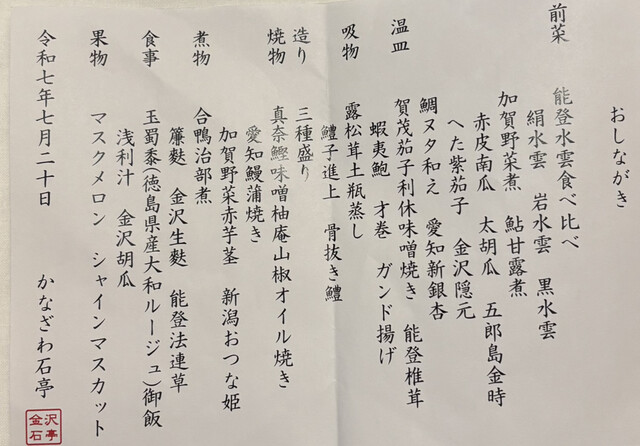 おしながき
前菜
能登水雲食べ比べ
絹水雲 岩水雲 黒水雲
加賀野菜煮 鮎甘露煮
赤皮南瓜 太胡瓜 五郎島金時
へた紫茄子 金沢隠元
鯛ヌタ和え 愛知新銀杏
温皿 賀茂茄子利休味噌焼き 能登椎茸
蝦夷鮑 才巻 ガンド揚げ
吸物 露松茸土瓶蒸し
鱧子進上 骨抜き鱧
造り 三種盛り
焼物 真奈鰹味噌柚庵山椒オイル焼き
愛知鰻蒲焼き
加賀野菜赤芋茎 新潟おつな姫
煮物 合鴨治部煮
簾麩 金沢生麩 能登法連草
食事 玉蜀黍(徳島県産大和ルージュ)御飯
浅利汁 金沢胡瓜
果物 マスクメロン シャインマスカット
令和七年七月二十日 かなざわ石亭
金沢石亭